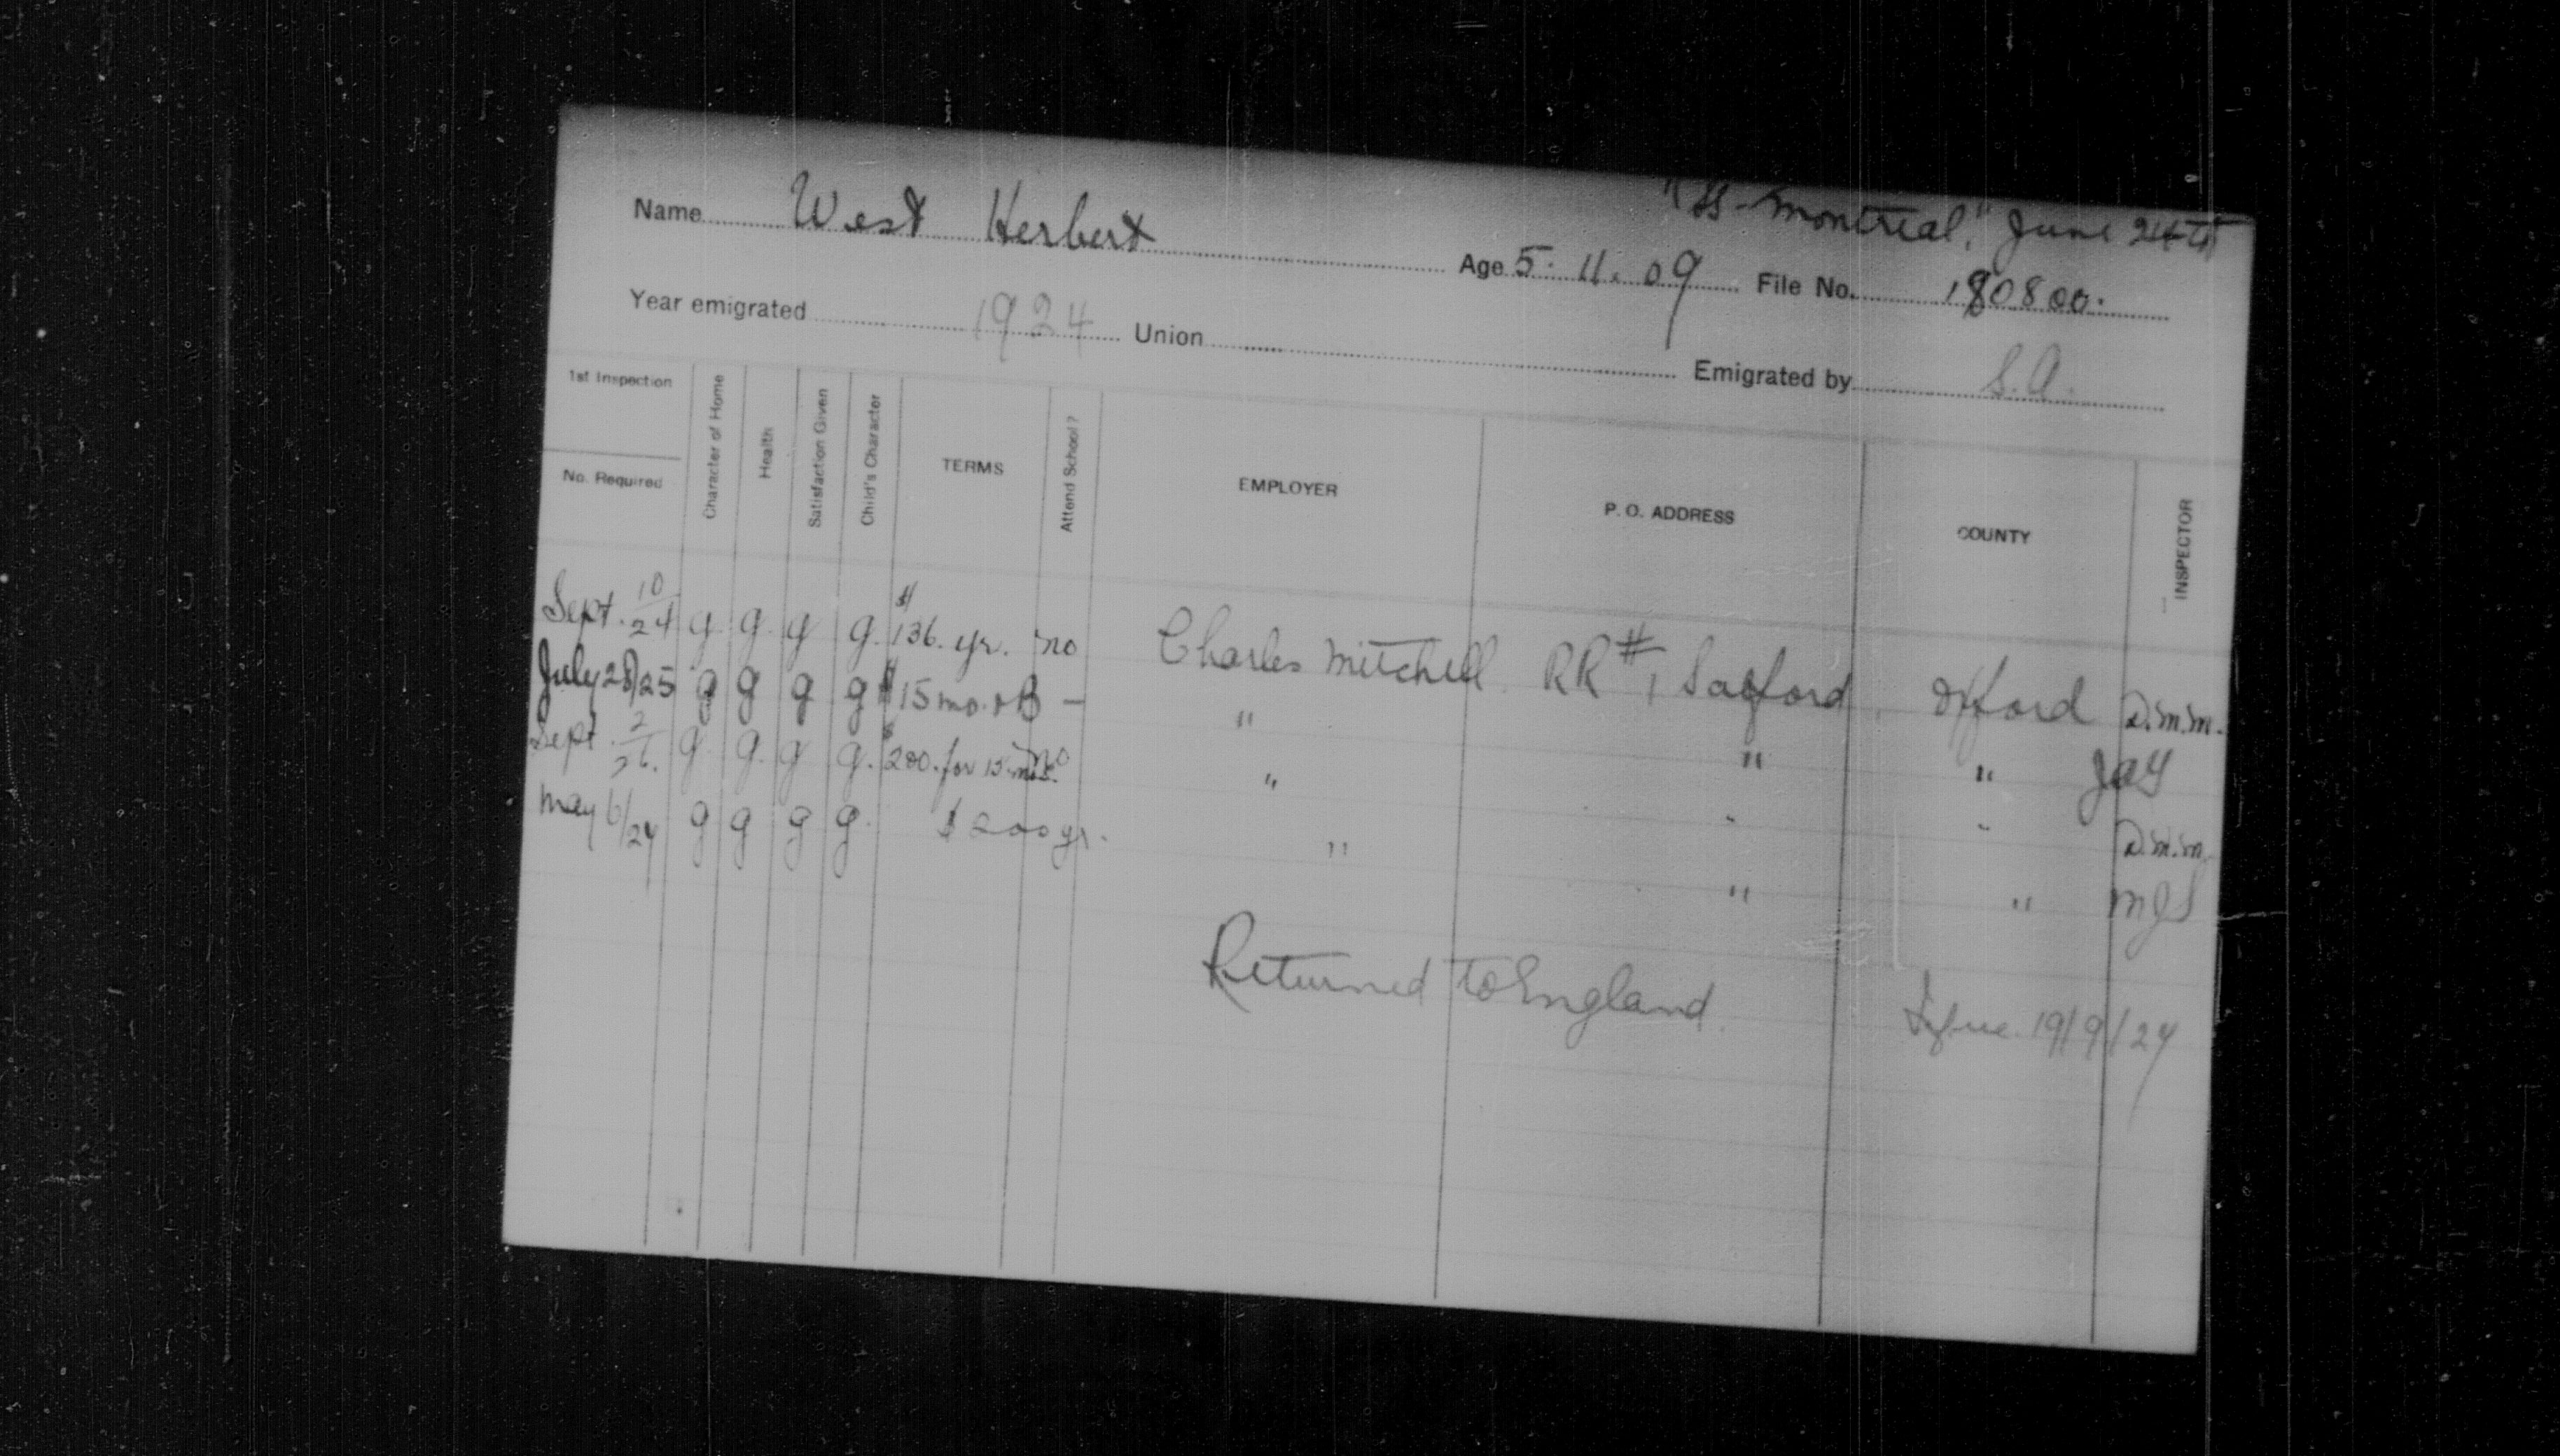 "SS-Montreal," June 24th
Name West Herbert Age 5. 11. 09 File No. 180800.
Year emigrated 1924 Union Emigrated by S.A.
1st Inspection
No. Required
Character of Home
Health
Satisfaction Given
Child's Character
TERMS
Attend School?
EMPLOYER
P. O. ADDRESS
COUNTY
INSPECTOR
Sept. 10/24 g. g. g g. $136. yr. no Charles Mitchell. RR #1, Salford, Oxford D.M.M.
July 28/25 g g g g $15 mo. + B — " " " JAY
Sept. 2/26. g. g. g g. $200. for 12 mos. no " " " D.M.M.
May 6/27 g g g g. $200 yr. " " " MJS
Returned to England. 19/9/27